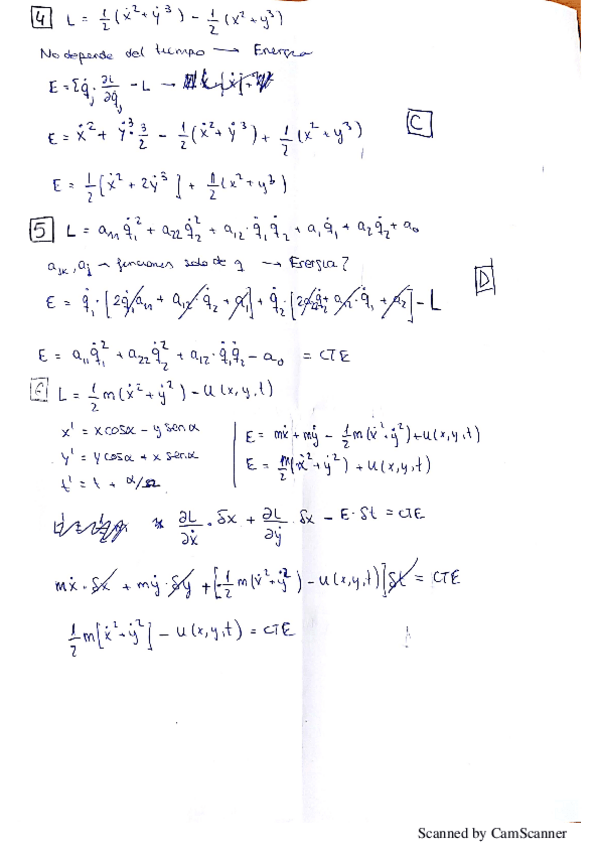 4 L = 1/2 (ẋ² + ẏ³) - 1/2 (x² + y³)
No depende del tiempo → Energía
E = Σ q̇j · ∂L/∂q̇j - L →
E = ẋ² + ẏ³ · 3/2 - 1/2 (ẋ² + ẏ³) + 1/2 (x² + y³) C
E = 1/2 [ẋ² + 2ẏ³] + 1/2 (x² + y³)
5 L = a₁₁q̇₁² + a₂₂q̇₂² + a₁₂·q̇₁q̇₂ + a₁q̇₁ + a₂q̇₂ + a₀
aⱼₖ, aⱼ → funciones solo de q → Energía? D
E = q̇₁·[2q̇₁a₁₁ + a₁₂q̇₂ + a₁] + q̇₂·[2a₂₂q̇₂ + a₁₂·q̇₁ + a₂] - L
E = a₁₁q̇₁² + a₂₂q̇₂² + a₁₂·q̇₁q̇₂ - a₀ = CTE
6 L = 1/2 m(ẋ² + ẏ²) - U(x,y,t)
x' = x cosα - y senα
E = mẋ + mẏ - 1/2 m(ẋ² · ẏ²) + U(x,y,t)
y' = y cosα + x senα
E = m/2 (ẋ² + ẏ²) + U(x,y,t)
t' = t + α/Ω
∂L/∂ẋ · δx + ∂L/∂ẏ · δx - E·δt = CTE
mẋ · δx + mẏ · δy + [-1/2 m(ẋ² + ẏ²) - U(x,y,t)] δt = CTE
1/2 m[ẋ² + ẏ²] - U(x,y,t) = CTE
Scanned by CamScanner